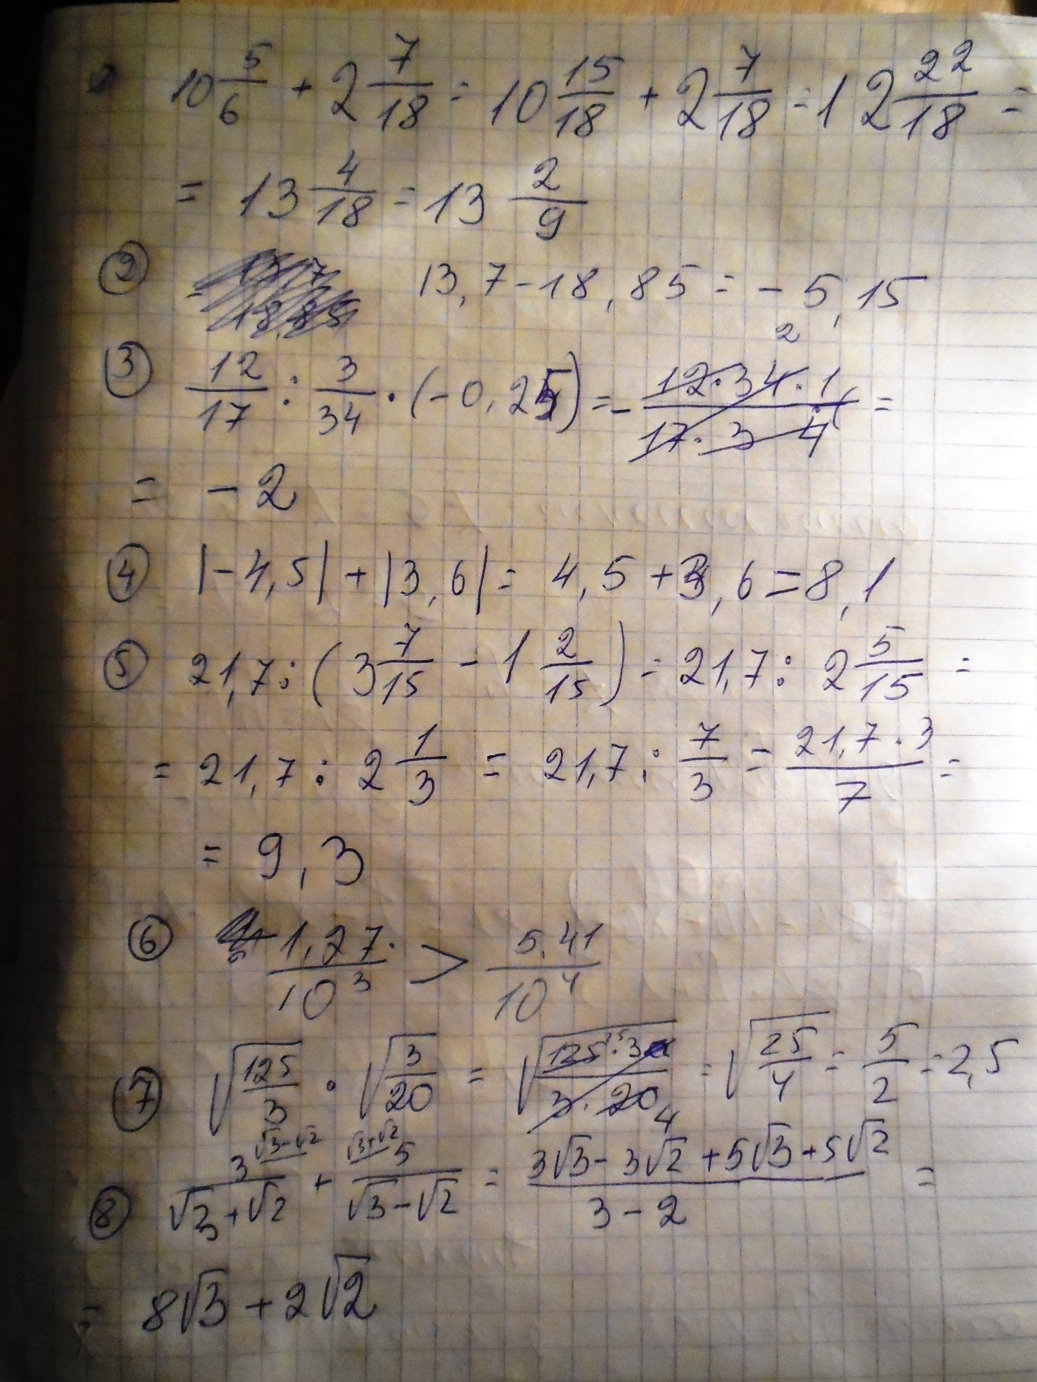 10 5/6 + 2 7/18 = 10 15/18 + 2 7/18 = 12 22/18 =
= 13 4/18 = 13 2/9
② 13,7 - 18,85 = - 5,15
③ 12/17 : 3/34 · (-0,25) = - 12·34·1/17·3·4 =
= - 2
④ |-4,5| + |3,6| = 4,5 + 3,6 = 8,1
⑤ 21,7 : (3 7/15 - 1 2/15) = 21,7 : 2 5/15 =
= 21,7 : 2 1/3 = 21,7 : 7/3 = 21,7·3/7 =
= 9,3
⑥ 1,27/10³ > 5,41/10⁴
⑦ √(125/3) · √(3/20) = √(125·3/3·20) = √(25/4) = 5/2 = 2,5
⑧ 3/(√3+√2) + 5/(√3-√2) = (3√3 - 3√2 + 5√3 + 5√2)/(3-2) =
= 8√3 + 2√2